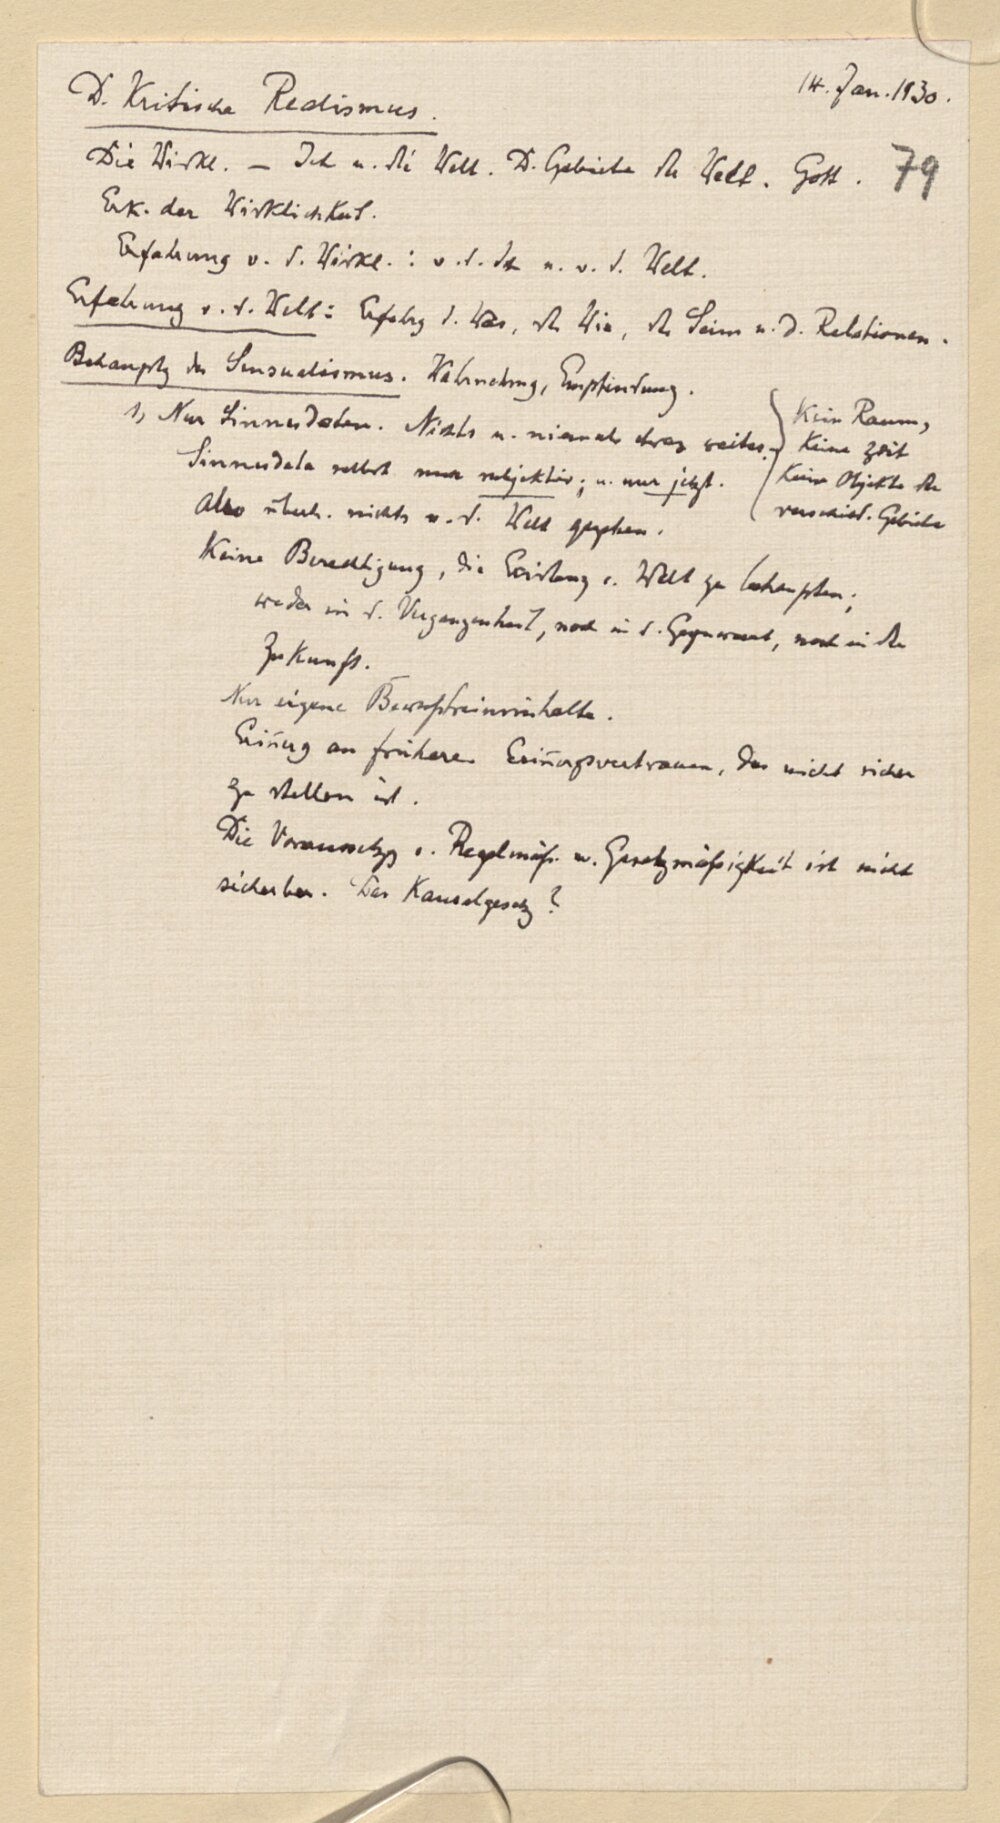 14. Jan. 1930.
D. Kritische Realismus.
79
Die Wirkl. — Ich u. die Welt. D. Gebiete der Welt. Gott.
Erk. der Wirklichkeit.
Erfahrung v. d. Wirkl.: v. d. Ich u. v. d. Welt.
Erfahrung v. d. Welt: Erfahrg d. Was, des Wie, des Seins u. d. Relationen.
Behauptg des Sensualismus. Wahrnehmg, Empfindung.
1, Nur Sinnesdaten. Nichts u. niemals etwas weiter.
Sinnesdata selbst nur subjektiv; u. nur jetzt.
Also überh. nichts v. d. Welt gegeben.
Kein Raum,
Keine Zeit
Keine Objekte der
verschied. Gebiete
Keine Berechtigung, die Existenz e. Welt zu behaupten;
weder in d. Vergangenheit, noch in d. Gegenwart, noch in der
Zukunft.
Nur eigene Bewußtseinsinhalte.
Erin̄erg an frühere. Erin̄ergsvertrauen, das nicht sicher
zu stellen ist.
Die Voraussetzg e. Regelmäß. u. Gesetzmäßigkeit ist nicht
sicherbar. Das Kausalgesetz?